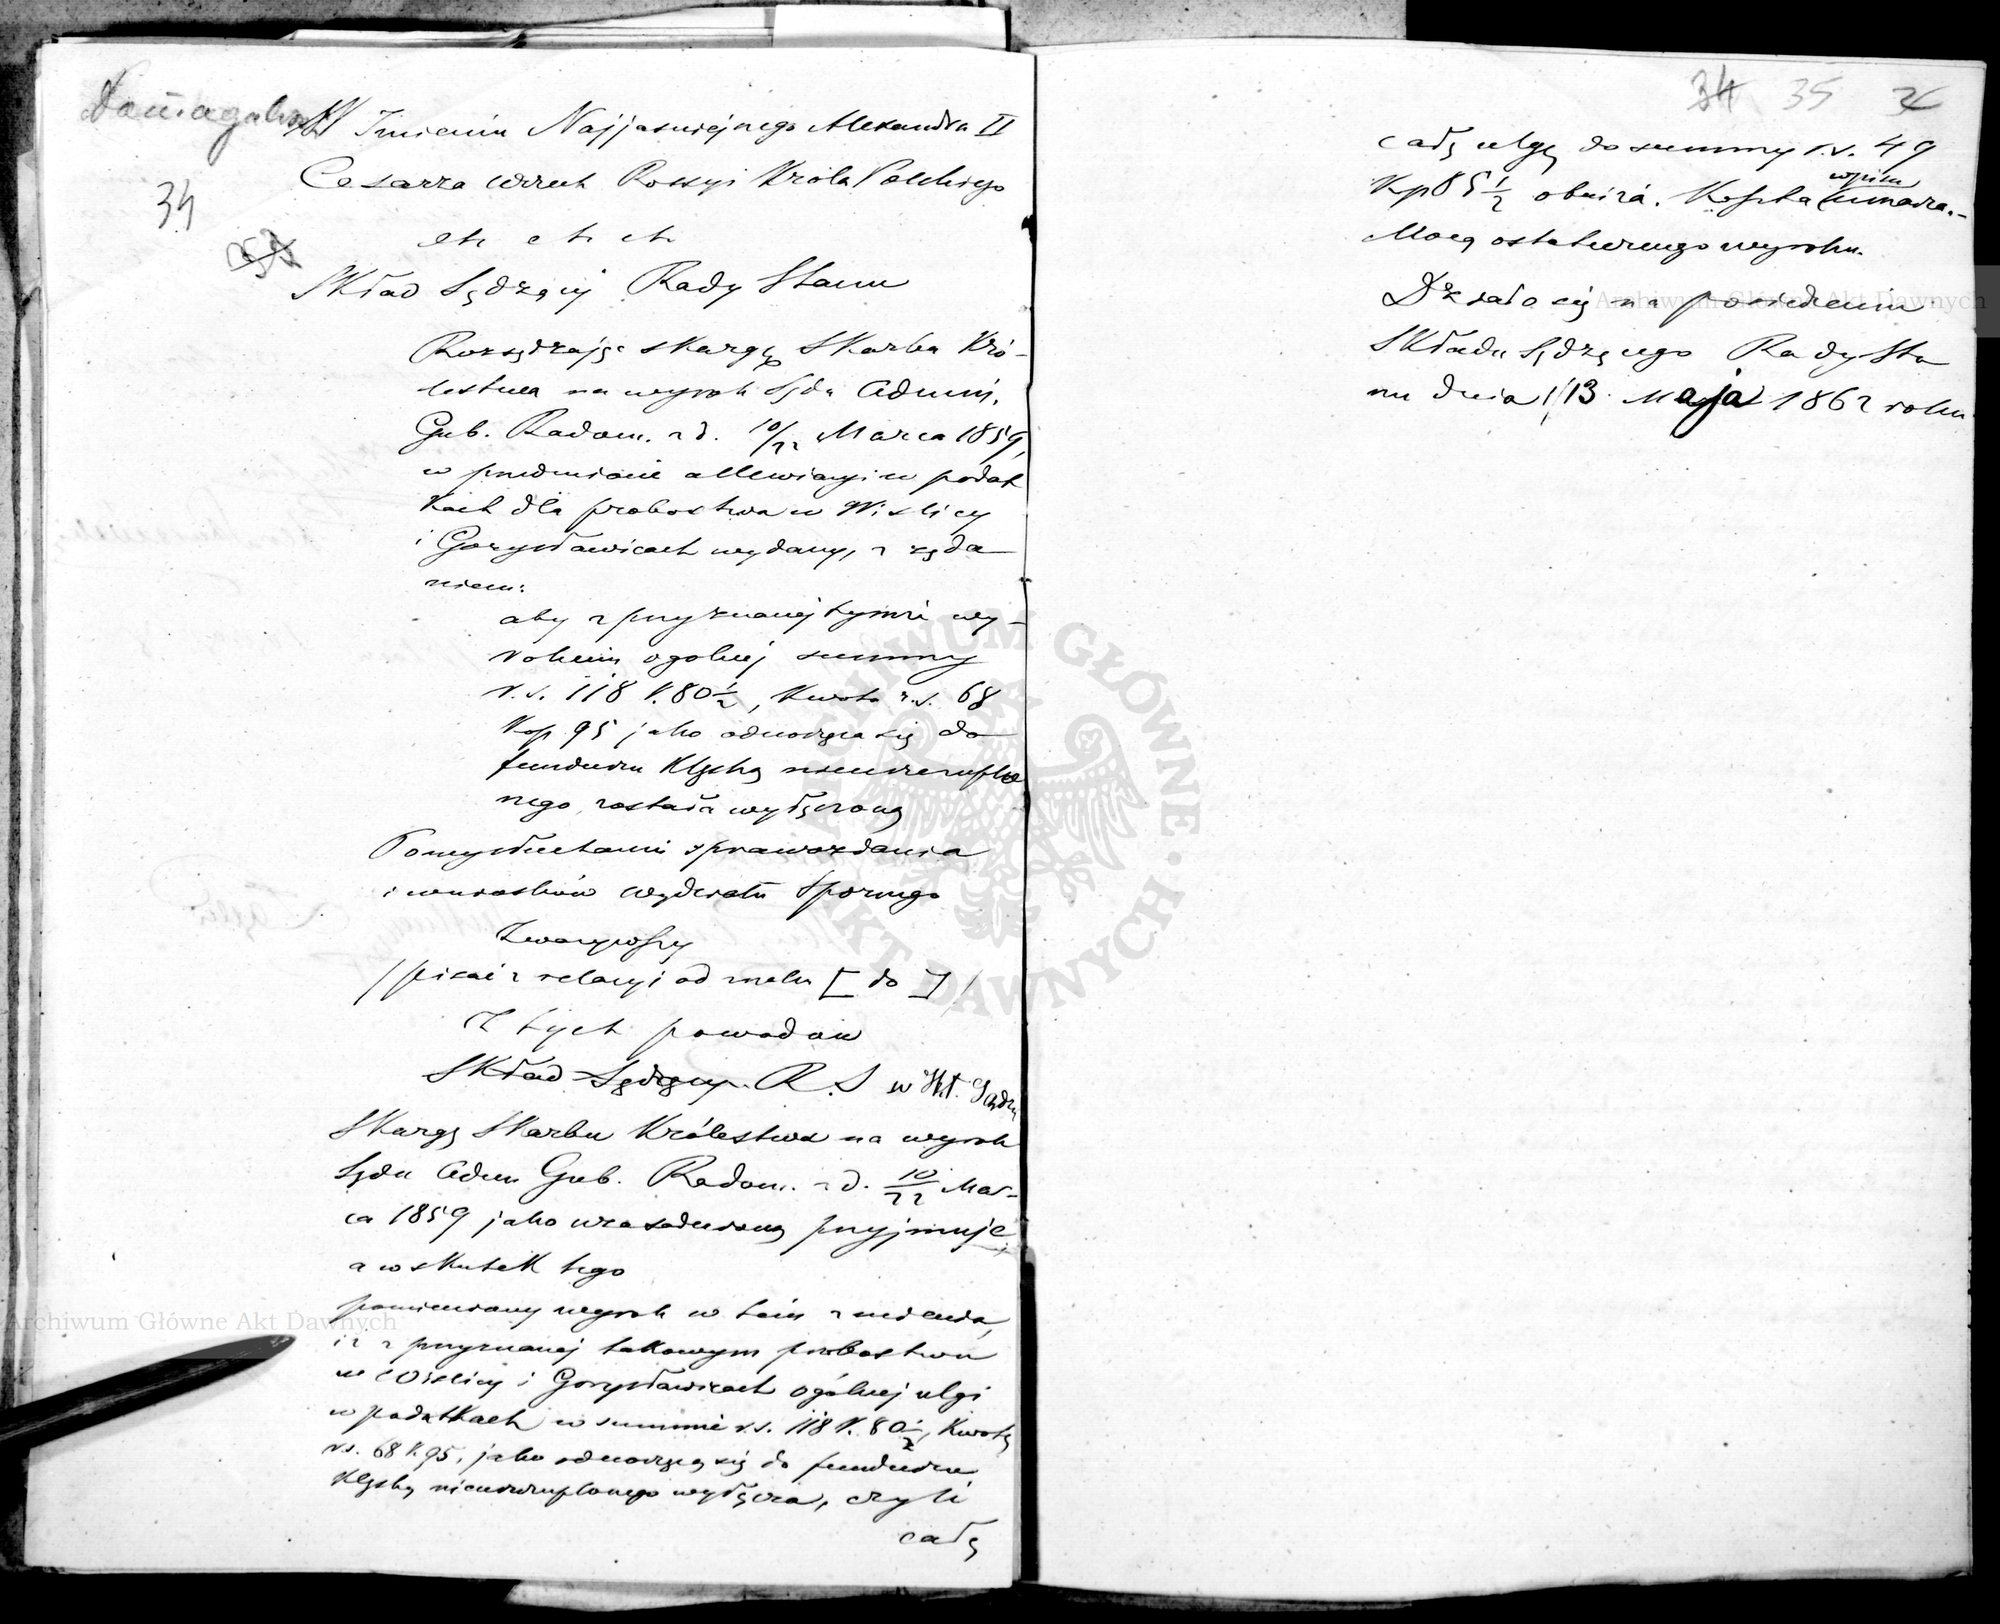 34
W Imieniu Najjaśniejszego Alexandra II
Cesarza wszech Rossyi Króla Polskiego
etc etc etc
Skład Sądzący Rady Stanu
Rozsądzając skargę Skarbu Kró-
lestwa na wyrok Sądu Admin.
Gub. Radom. z d. 10/22 Marca 1859,
w przedmiocie allewiacyi w podat
kach dla probostwa w Wiślicy
i Gorysławicach wydany, z żąda
niem:
aby z przyznanej tymże wy-
rokiem ogólnej summy
r.s. 118 k. 80 1/2, kwota r.s. 68
kop 95 jako odnosząca się do
funduszu klęską niedotknię
nego, została wyłączoną
Po wysłuchaniu sprawozdania
i wniosków wydziału Spornego
Zważywszy
/ pisać z relacyi od znaku [ do ] /
Z tych powodów
Skład Sądzący R. S
Skargę Skarbu Królestwa na wyrok
Sądu Adm Gub. Radom. z d. 10/22 Mar-
ca 1859 jako uzasadnioną przyjmuje
a w skutek tego
pomieniony wyrok w tém zmienia,
iż z przyznanej takowym probostwu
w Wiślicy i Gorysławicach ogólnej ulgi
w podatkach w summie r.s. 118 k. 80 1/2, kwotę
r.s. 68 k. 95, jako odnoszącą się do funduszu
klęską wyłącza, czyli
całą
34 35
całą ulgę do summy r.s. 49
kp 85 1/2 obniża. Koszta wpisu umarza.-
Mocą ostatecznego wyroku.
Działo się na posiedzeniu
Składu Sądzącego Rady Sta
nu dnia 1/13 Maja 1862 roku
Archiwum Główne Akt Dawnych
Archiwum Główne Akt Dawnych
ARCHIWUM GŁÓWNE · AKT DAWNYCH ·